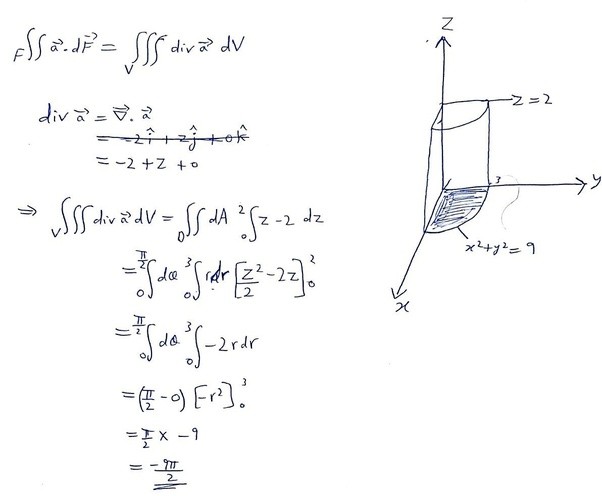 F∬ a⃗·dF⃗ = ∭V div a⃗ dV
div a⃗ = ∇⃗. a⃗
= -2î + zĵ + 0k̂
= -2 + z + 0
⇒ ∭V div a⃗ dV = ∬D dA ∫₀² z - 2 dz
= ∫₀^(π/2) dθ ∫₀³ r dr [z²/2 - 2z]₀²
= ∫₀^(π/2) dθ ∫₀³ -2rdr
= (π/2 - 0) [-r²]₀³
= π/2 x -9
= -9π/2
z
z=2
3
y
x²+y²=9
x